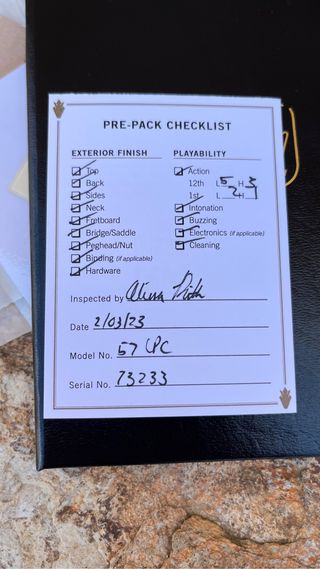 PRE-PACK CHECKLIST
EXTERIOR FINISH
Top
Back
Sides
Neck
Fretboard
Bridge/Saddle
Peghead/Nut
Binding (if applicable)
Hardware
PLAYABILITY
Action
12th L 5 H 3
1st L 2 H 1
Intonation
Buzzing
Electronics (if applicable)
Cleaning
Inspected by
Date 2/03/23
Model No. 57 CPC
Serial No. 73233